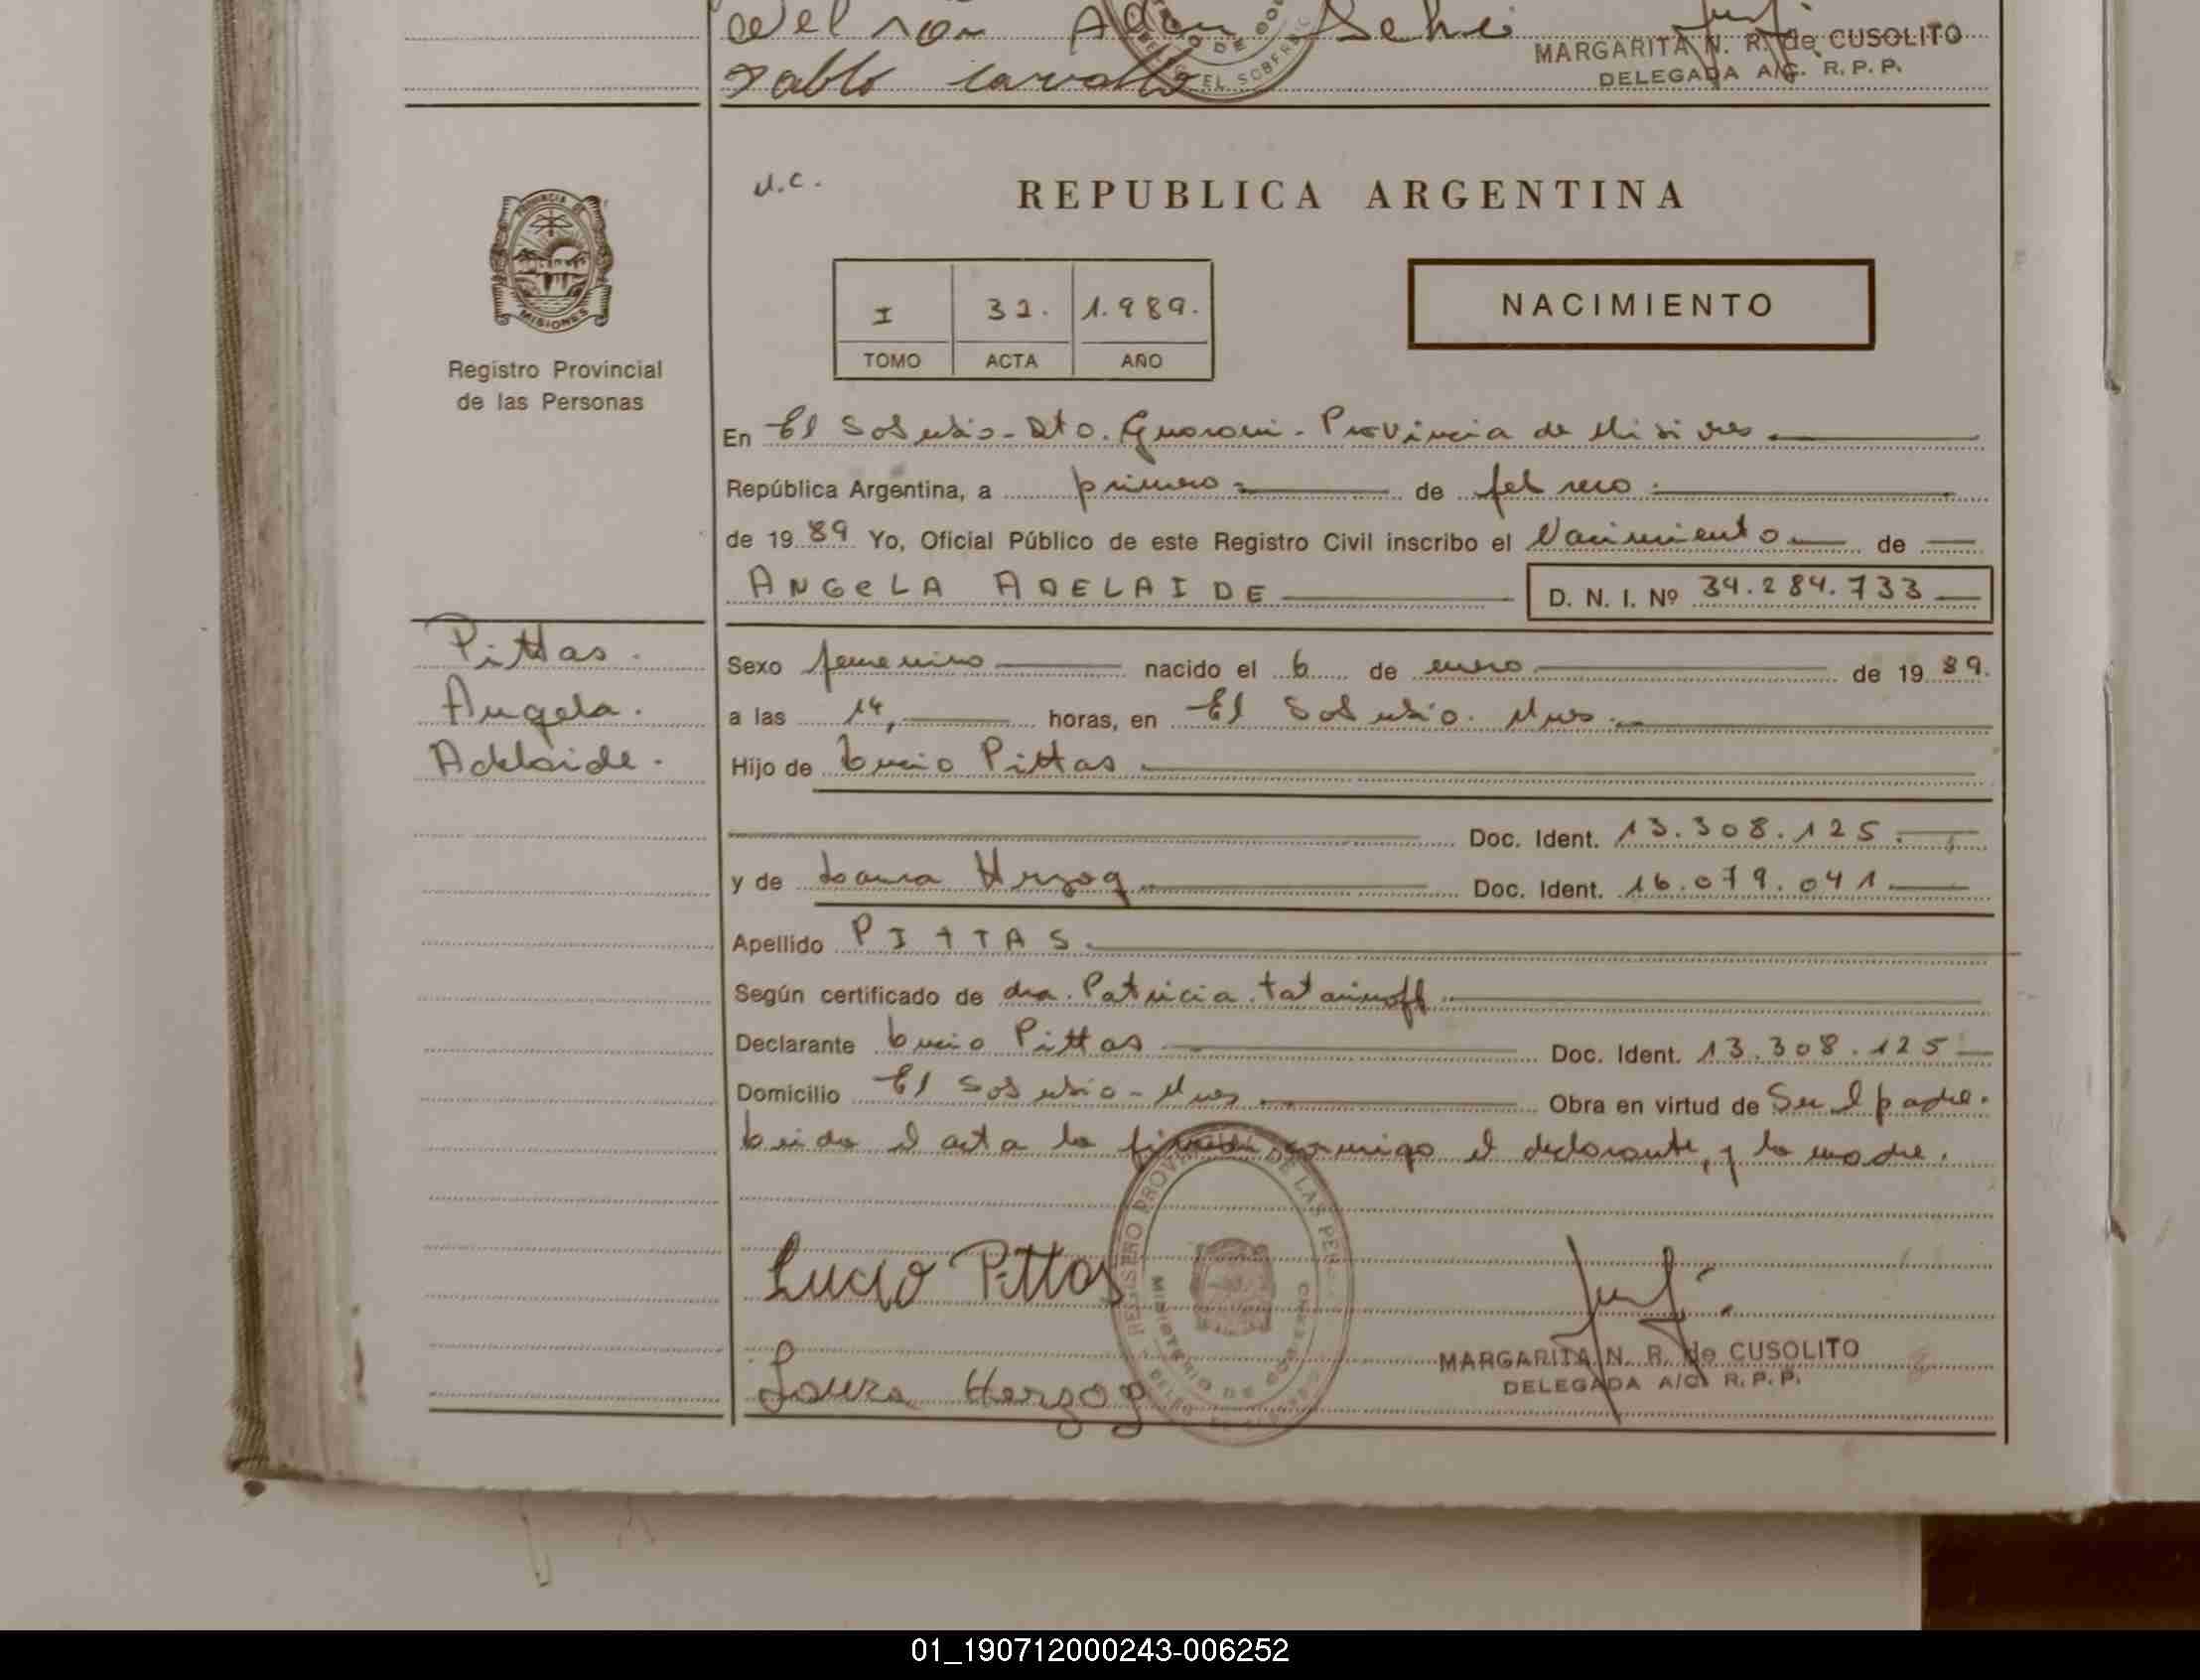 Nelson Adan Sehi
Pablo Carvallo
MARGARITA N. R. de CUSOLITO
DELEGADA A/C. R. P. P.
PROVINCIA DE
MISIONES
Registro Provincial
de las Personas
N.C.
REPUBLICA ARGENTINA
I 32. 1.989.
TOMO ACTA AÑO
NACIMIENTO
En El Soberbio - Dto. Guarani - Provincia de Misiones
República Argentina, a primero de febrero.
de 1989 Yo, Oficial Público de este Registro Civil inscribo el Nacimiento de
ANGELA ADELAIDE D. N. I. Nº 34.284.733
Pittas.
Angela.
Adelaide.
Sexo femenino nacido el 6 de enero de 1989.
a las 14, horas, en El Soberbio. Mnes.
Hijo de Lucio Pittas
Doc. Ident. 13.308.125.
y de Laura Herzog Doc. Ident. 16.079.041
Apellido PITTAS.
Según certificado de dra. Patricia Tatarinoff
Declarante Lucio Pittas Doc. Ident. 13.308.125
Domicilio El Soberbio - Mnes Obra en virtud de Ser el padre.
Leida el acta la firman conmigo el declarante, y la madre.
REGISTRO PROVINCIAL DE LAS PER
MINISTERIO DE GOBIERNO
Lucio Pittas
Laura Herzog
MARGARITA N. R. de CUSOLITO
DELEGADA A/C. R. P. P.
01_190712000243-006252